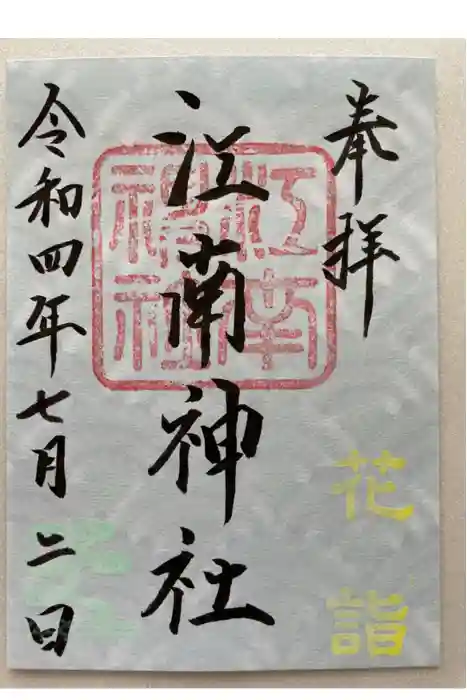 奉拝
花詣
江南神社
江南
神社
令和四年七月二日